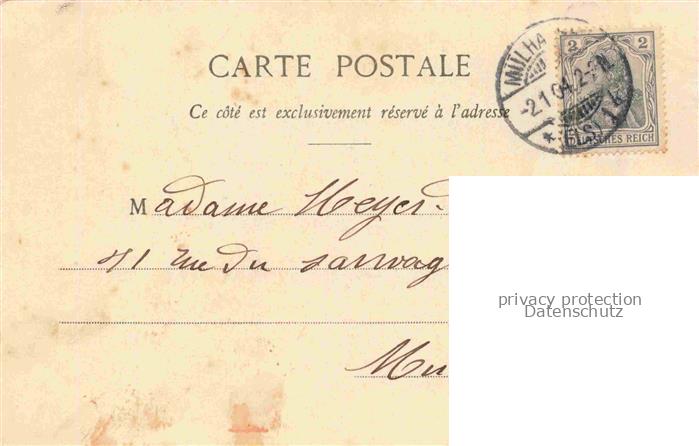 CARTE POSTALE
Ce côté est exclusivement réservé à l'adresse
MÜLHA
-2.1.04.2-3N.
2 2
DEUTSCHES REICH
Madame Meyer-
41 rue du sauvag
Mu
privacy protection
Datenschutz